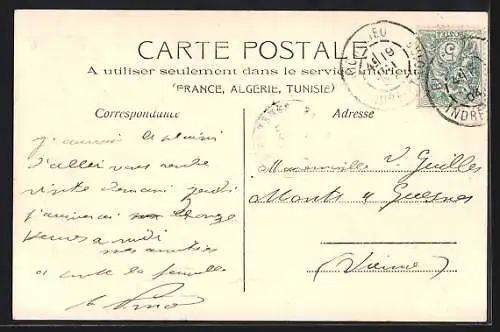 CARTE POSTALE
A utiliser seulement dans le service intérieur
(FRANCE, ALGÉRIE, TUNISIE)
Correspondance
Adresse
j'aurai le plaisir
d'aller vous rendre
visite demain jeudi
j'arriverai
à midi
mes amitiés
à toute la famille
Mademoiselle V. Guilles
Monts s Guesnes
(Vienne)
RICHELIEU
19
INDRE
04